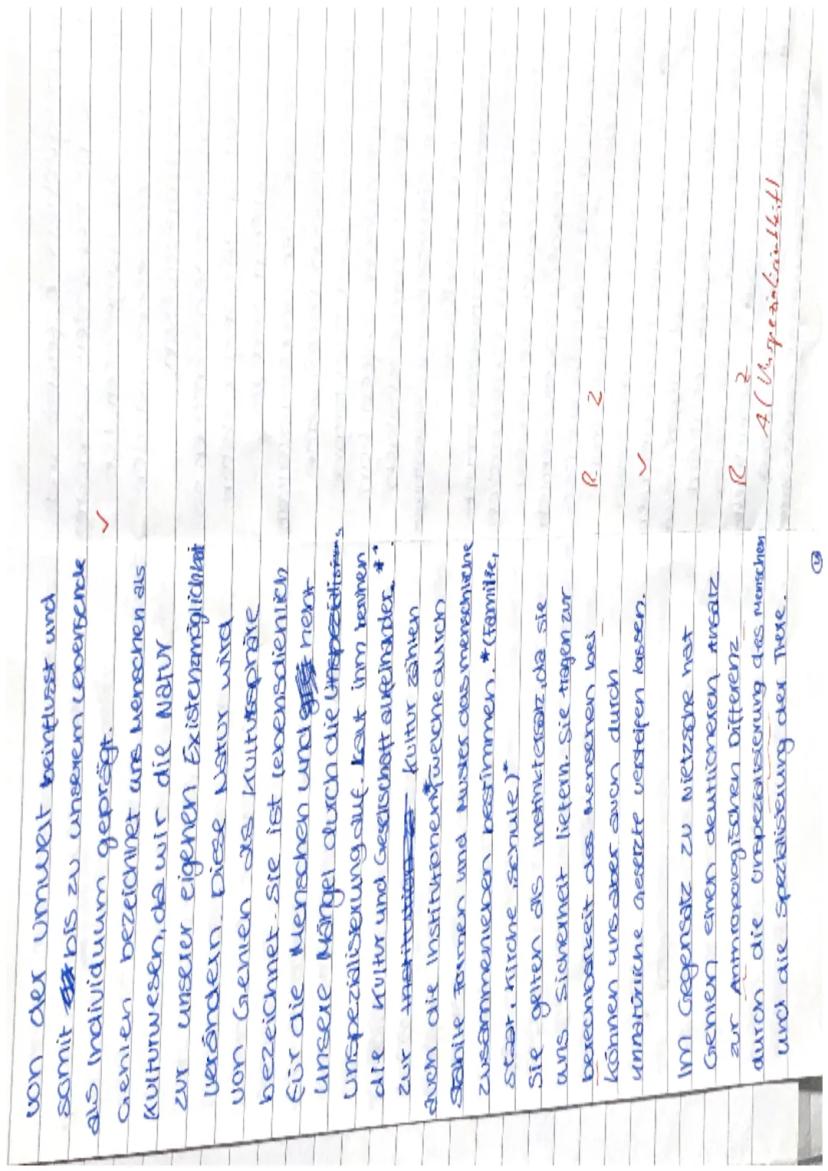 von der Umwelt beinflusst und
somit bis zu unserem Lebensende
als Individuum geprägt. ✓
Gehlen bezeichnet uns Menschen als
Kulturwesen, da wir die Natur
zur unserer eigenen Existenzmöglichkeit
verändern. Diese Natur wird
von Gehlen als Kultursphäre
bezeichnet. Sie ist lebensdienlich
für die Menschen und
unsere Mängel durch die
Unspezialisierung auf. Laut ihm
die Kultur und Gesellschaft aufeinander.**
zur Kultur zählen
auch die Institutionen, welche durch
Stabile Formen und Muster das menschliche
zusammenleben bestimmen.* (Familie,
Staat, Kirche, Schule)*
Sie gelten als Instinktersatz, da sie
uns Sicherheit liefern. Sie tragen zur
des Menschen bei R Z
können uns aber auch durch
unnatürliche Gesetzte lassen. ✓
Im Gegensatz zu Nietzsche hat
Gehlen einen deutlicheren Ansatz
zur Anthropologischen Differenz R Z
durch die Unspezialisierung des Menschen A (Unspezialisiertheit)
und die Spezialisierung der Tiere.